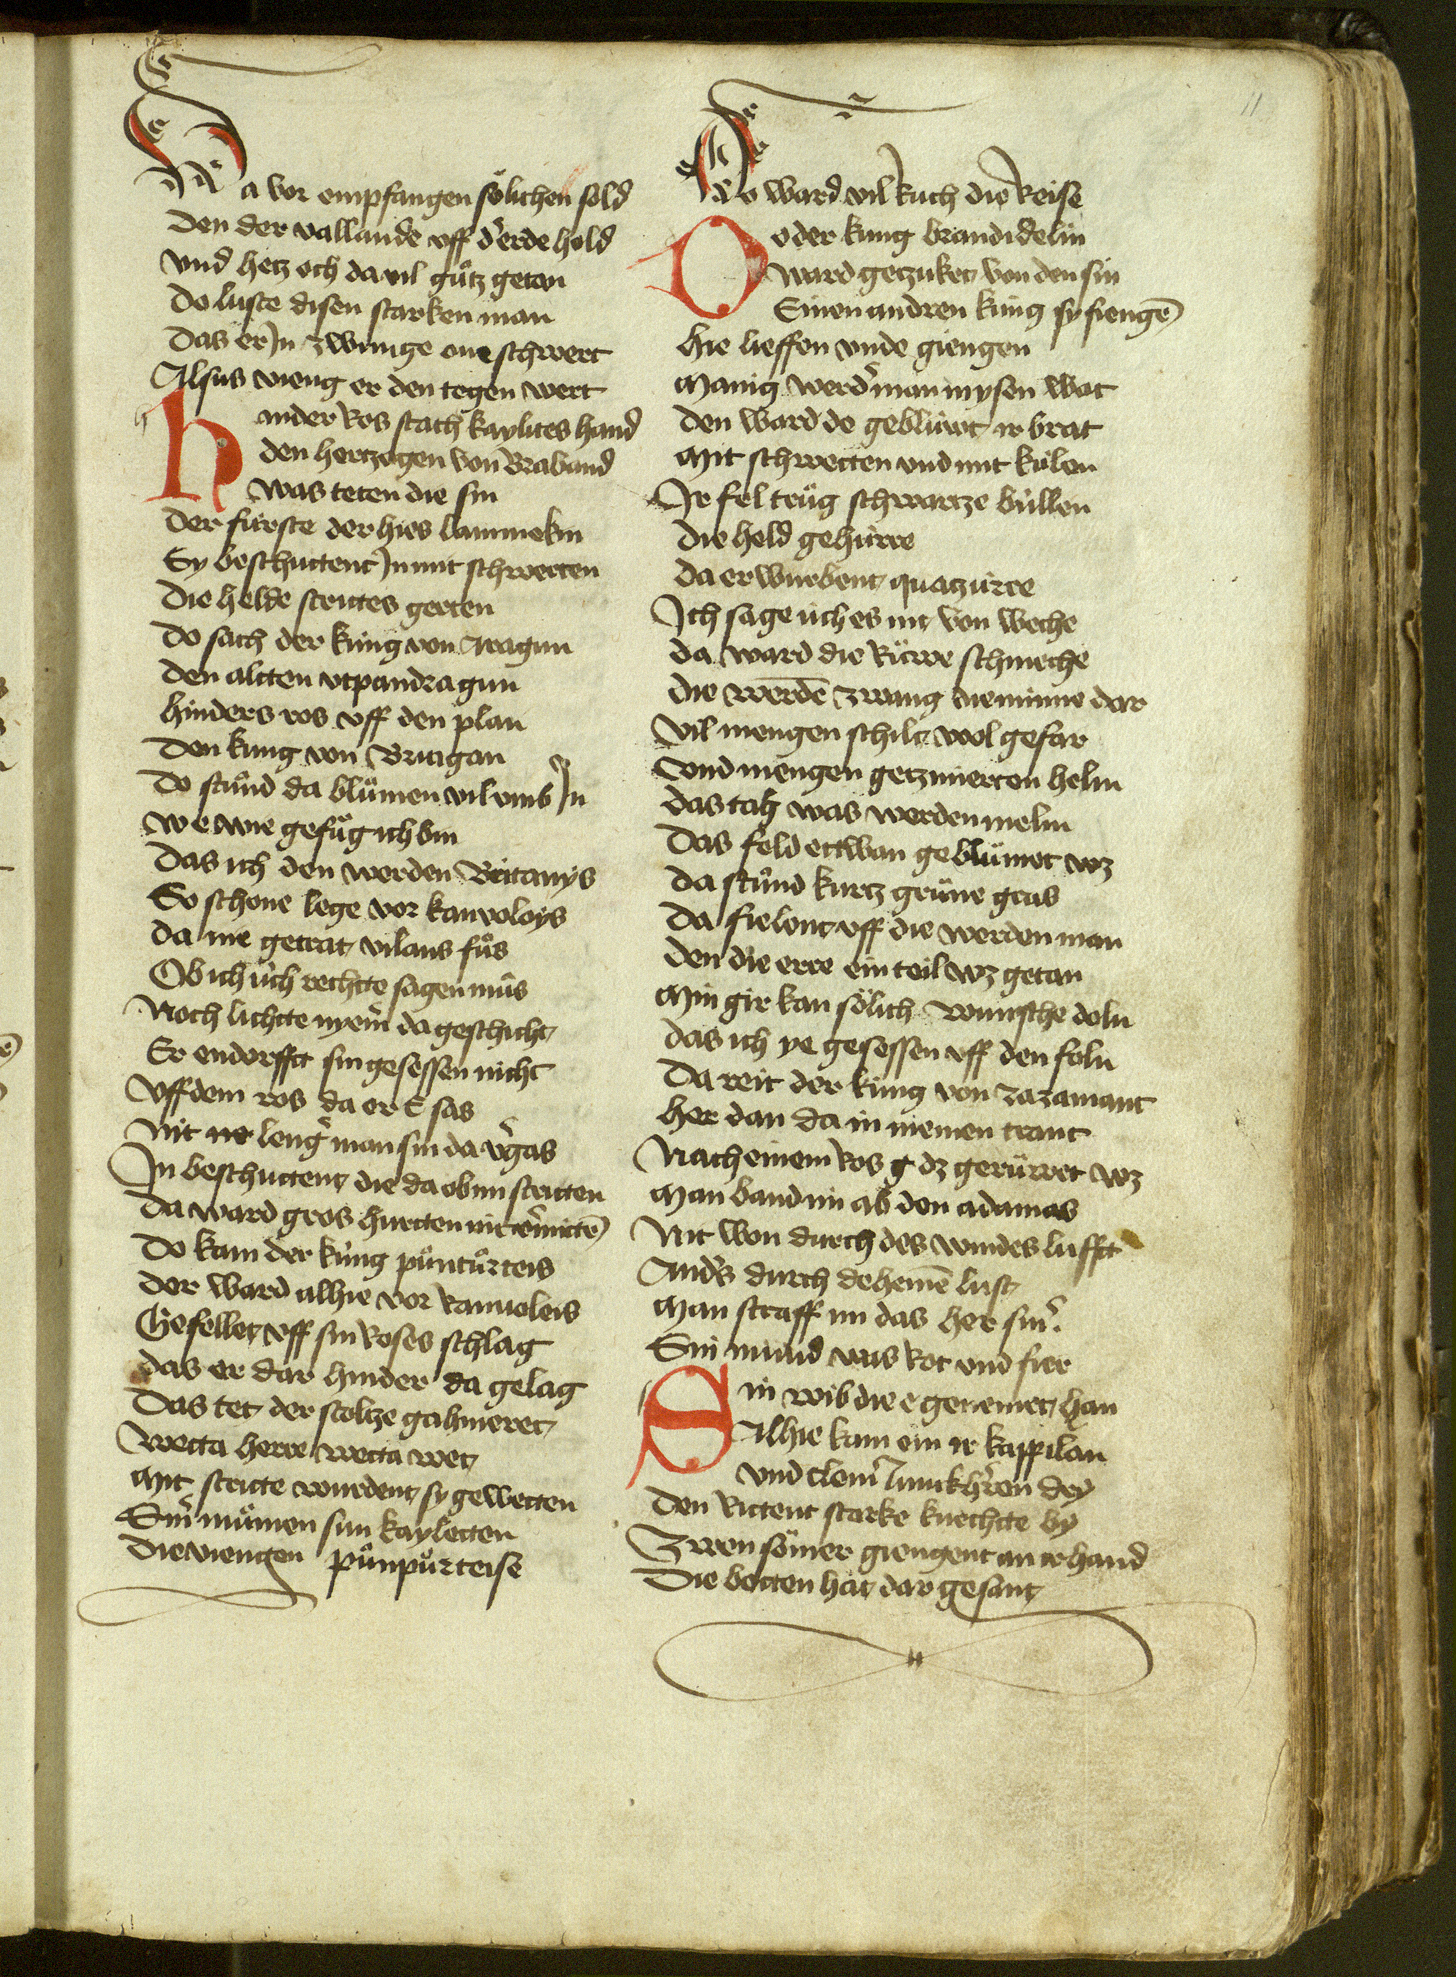 11
Da vor empfangen sölichen sold
Den der vallande vff d'erde hold
Vnd hetz och da vil gůtz getan
Do luste disen starken man
Das er Jn zwunge one schwert
Alsus vieng er den tegen wert
Hinder ros stach kaylites hand
den hertzogen von Braband
was teten die sin
Der fúrste der hies lammekin
Sy beschuttent Jn mit schwerten
Die helde strites gerten
Do sach der kúng von Aragun
Den altten vtpandragun
hinders ros vff den plan
Den kúng von Britigan
Do stůnd da blůmen vil vmb Jn
we wie gefůg ich bin
Das ich den werden Britanys
So schone lege vor kanvoloys
Da nie getrat vilans fůs
Ob ich úch rechtte sagen můs
Noch lichtte nyem' da geschicht
Er endorfft sin gesessen nicht
Vff dem ros da er E sas
Nit ne leng' man sin da v'gas
Jn beschuttent die da ob im stritten
Da ward gros hurtten nit v'mittē
Do kam der kúng půntůrteis
Der ward alhie vor kanuoleis
Gefellet vff sin Roses schlag
das er dar hinder da gelag
Das tet der stoltze gahmeret
Wetta herre wetta wet
Mit stritte wurdent sy gewetten
Sin' můmen sun kayletten
Die viengen půnpůrteise
Do ward vil Ruch die Reise
Do der kúng brandidelin
Ward getzuket von den sin
Einen andren kúng sy fiengē
hie lieffen vnde giengen
Manig werd' man in ysen wat
Den ward do geblúwt ir brat
Mit schwertten vnd mit kúlen
Jr fel trůg schwartze búllen
Die held gehúrre
Da erwurbent quatzúrre
Jch sage úch es nit von weche
Da ward die Rúwe schmeche
Die werdē zwang die minne dar
Vil mengen schilt wol gefar
Vnd mengen getzmierten helm
das tach was werden melm
Das feld ettwan geblůmet wz
Da stůnd kurtz grůne gras
Da fielent vff die werden man
Den die erre ein teil wz getan
Min gir kan sőlich wunsche doln
das ich ye gesessen vff den foln
Da reit der kúng von zazamant
her dan da in niemen trant
Nach einem Ros g dz gerůwet wz
Man band im ab den adamas
Nit won durch des windes lufft
And's durch dehenē lust
Man straff im das her sin'
Sin mund was Rot vnd fier
Ein wib die e genemet han
Alhie kam ein ir kappilan
vnd clein' Junckh'ren dry
Den Rittent starke knechtte by
Zwen sőmer giengent an ir hand
Die botten hat dar gesant